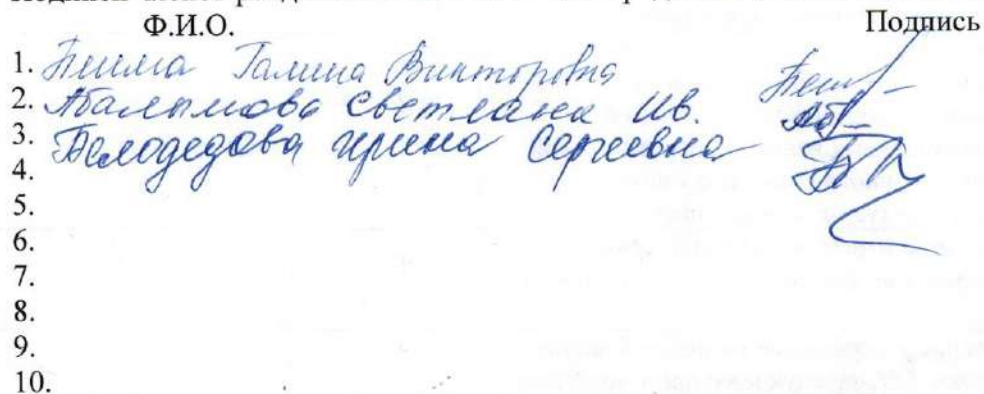 Ф.И.О. Подпись
1. Галина Викторовна
2. Светлана Ив.
3. Белодедова Ирина Сергеевна
4.
5.
6.
7.
8.
9.
10.